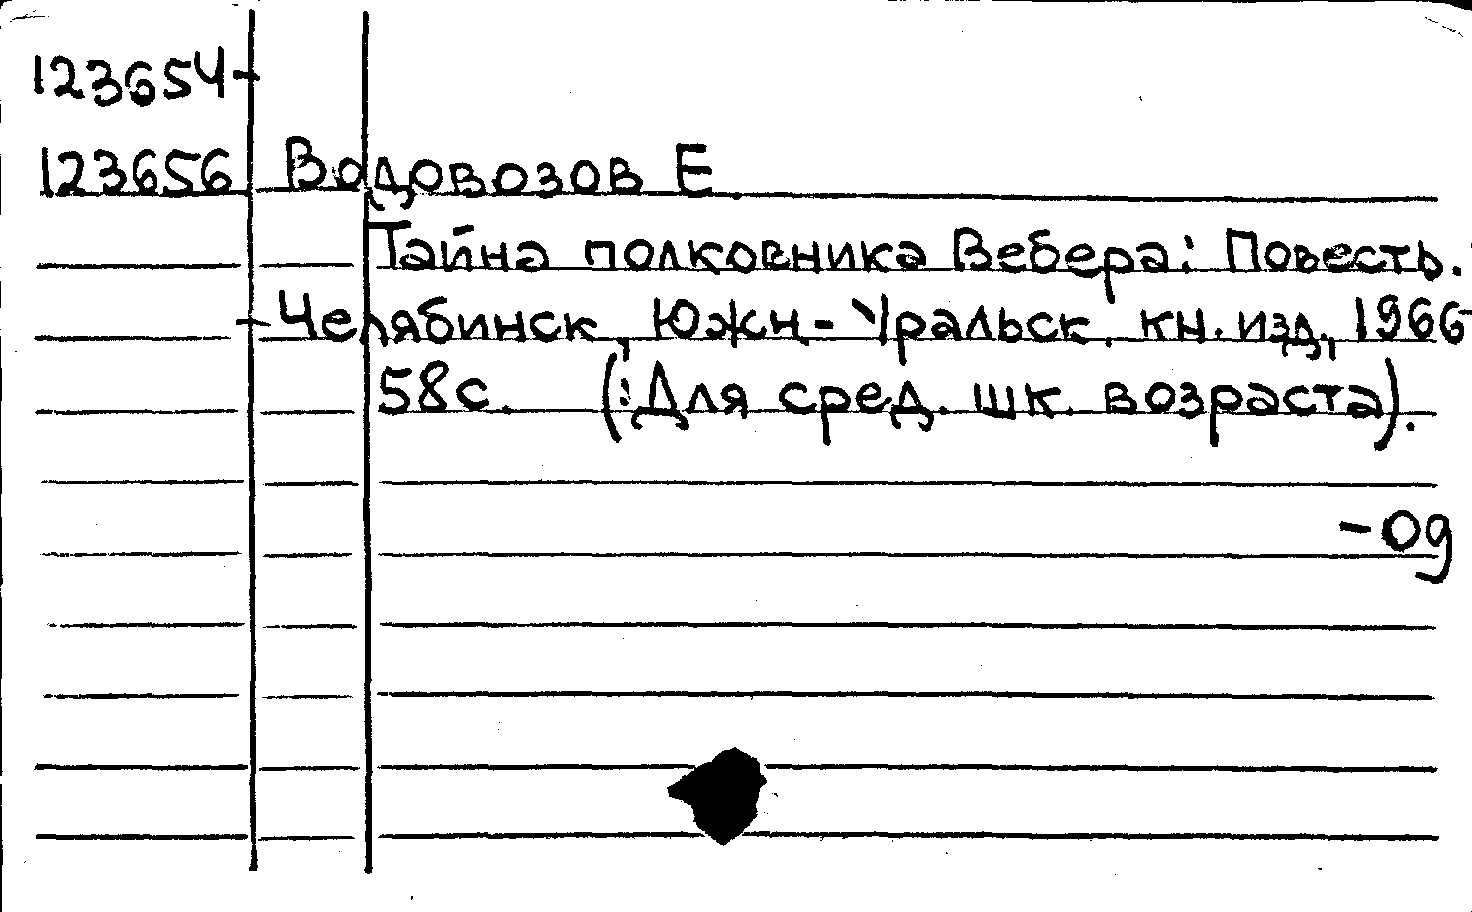 123654-
123656 Водовозов Е.
Тайна полковника Вебера: Повесть.
- Челябинск, Южн.- Уральск. кн. изд., 1966
58с. (: Для сред. шк. возраста).
-09